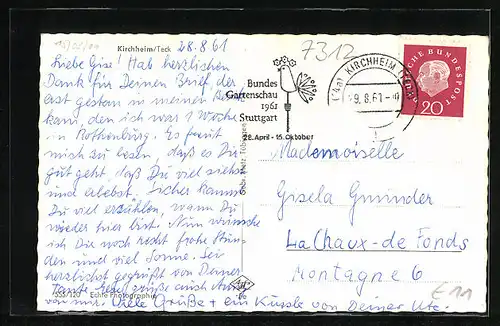 Kirchheim/Teck
28.8.61
7312
Liebe Gisel! Hab herzlichen
Dank für Deinen Brief, der
erst gestern in meinen Besitz
kam, denn ich war 1 Woche
in Rothenburg. Es freut
mich zu lesen, daß es Dir
gut geht, daß Du viel siehst
und erlebst. Sicher kannst
Du viel erzählen, wenn Du
wieder hier bist. Nun wünsche
ich Dir noch recht frohe Stun-
den und viel Sonne. Sei
herzlichst gegrüßt von Deiner
Tante. Grüße auch
von mir. Viele Grüße + ein Küssle von Deiner Ute.
553/120 Echte Photographie
Gebr. Metz Tübingen
Bundes
Gartenschau
1961
Stuttgart
28. April - 15. Oktober
KIRCHHEIM (TECK)
9.8.61
DEUTSCHE BUNDESPOST
20
Mademoiselle
Gisela Gmünder
La Chaux-de Fonds
Montagne 6
E 11